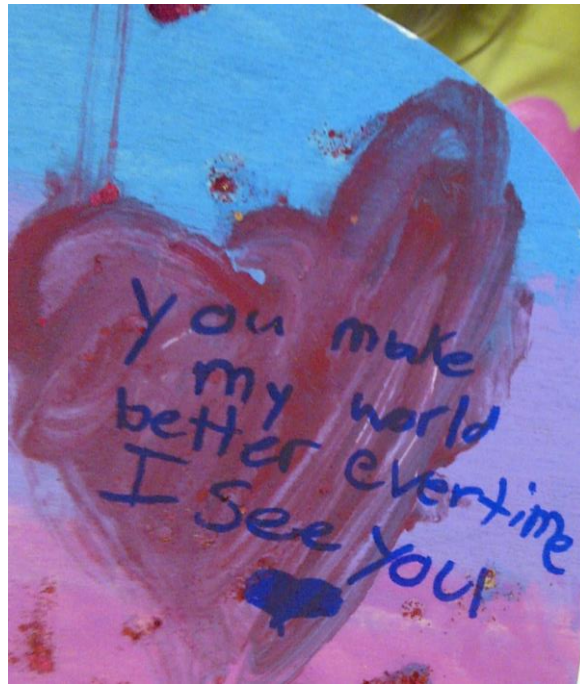 you make
my world
better evertime
I see you!